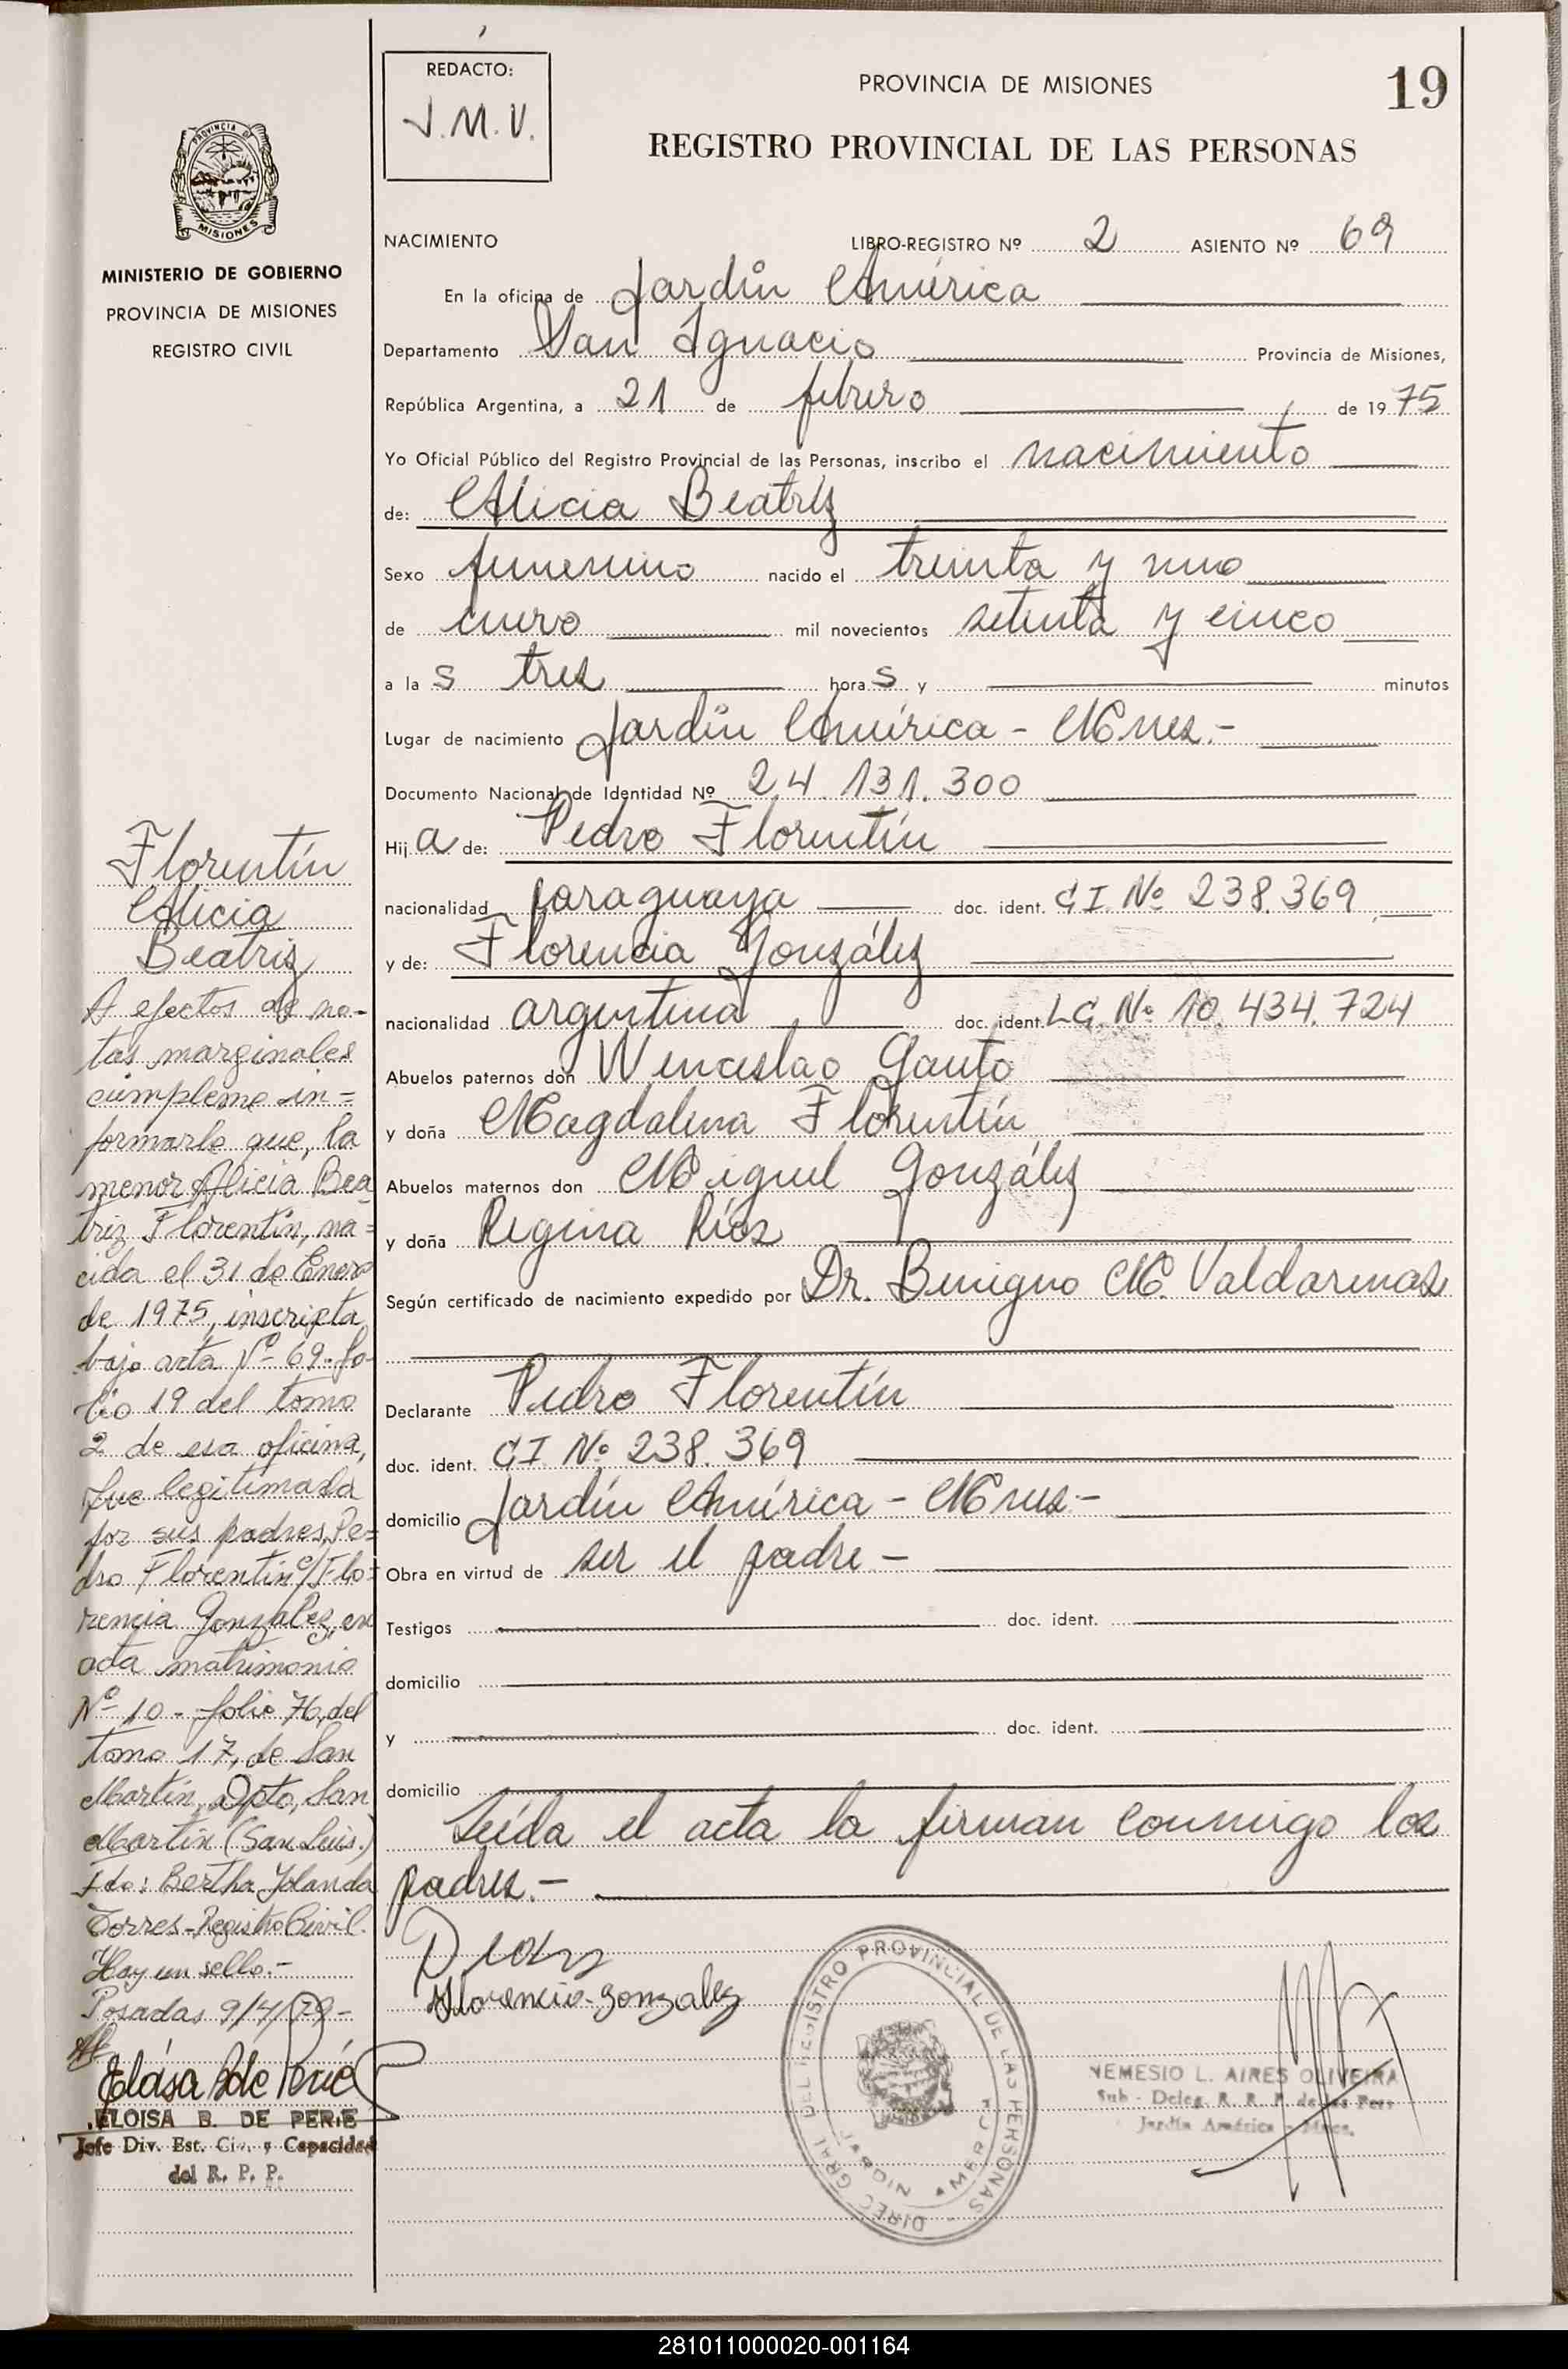 REDACTO:
J.M.V.
PROVINCIA DE MISIONES
19
REGISTRO PROVINCIAL DE LAS PERSONAS
PROVINCIA DE
MISIONES
MINISTERIO DE GOBIERNO
PROVINCIA DE MISIONES
REGISTRO CIVIL
NACIMIENTO LIBRO-REGISTRO Nº 2 ASIENTO Nº 69
En la oficina de Jardín América
Departamento San Ignacio Provincia de Misiones,
República Argentina, a 21 de febrero de 1975
Yo Oficial Público del Registro Provincial de las Personas, inscribo el nacimiento
de: Alicia Beatríz
Sexo femenino nacido el treinta y uno
de enero mil novecientos setenta y cinco
a la s tres hora s y minutos
Lugar de nacimiento Jardín América - Mnes.-
Documento Nacional de Identidad Nº 24.131.300
Hij a de: Pedro Florentín
nacionalidad paraguaya doc. ident. C.I. Nº 238.369
y de: Florencia González
nacionalidad argentina doc. ident. L.C. Nº 10.434.724
Abuelos paternos don Wenceslao Gauto
y doña Magdalena Florentín
Abuelos maternos don Miguel González
y doña Regina Ríos
Según certificado de nacimiento expedido por Dr. Benigno M. Valdarenas
Declarante Pedro Florentín
doc. ident. C.I. Nº 238.369
domicilio Jardín América - Mnes.-
Obra en virtud de ser el padre -
Testigos doc. ident.
domicilio
y doc. ident.
domicilio
Leída el acta la firman conmigo los
padres.-
Florencia gonzalez
DIREC. GRAL. DEL REGISTRO PROVINCIAL DE LAS PERSONAS
JARDIN AMERICA
NEMESIO L. AIRES OLIVEIRA
Sub - Deleg. R. R. P. de las Pers
Jardín América - Mnes.
Florentín
Alicia
Beatriz
A efectos de no-
tas marginales
cumpleme in=
formarle que, la
menor Alicia Bea
triz Florentín, na=
cida el 31 de Enero
de 1975, inscripta
bajo acta Nº 69-fo-
lio 19 del tomo
2 de esa oficina,
fue legitimada
por sus padres, Pe=
dro Florentin c/ Flo=
rencia Gonzalez, en
acta matrimonio
Nº 10 - folio 76, del
tomo 17, de San
Martín, Dpto, San
Martín (San Luis.)
Fdo: Bertha Yolanda
Torres-Registro Civil.
Hay un sello.-
Posadas 9/4/79-
ELOISA B. DE PERIE
Jefe Div. Est. Civ. y Capacidad
del R. P. P.
281011000020-001164